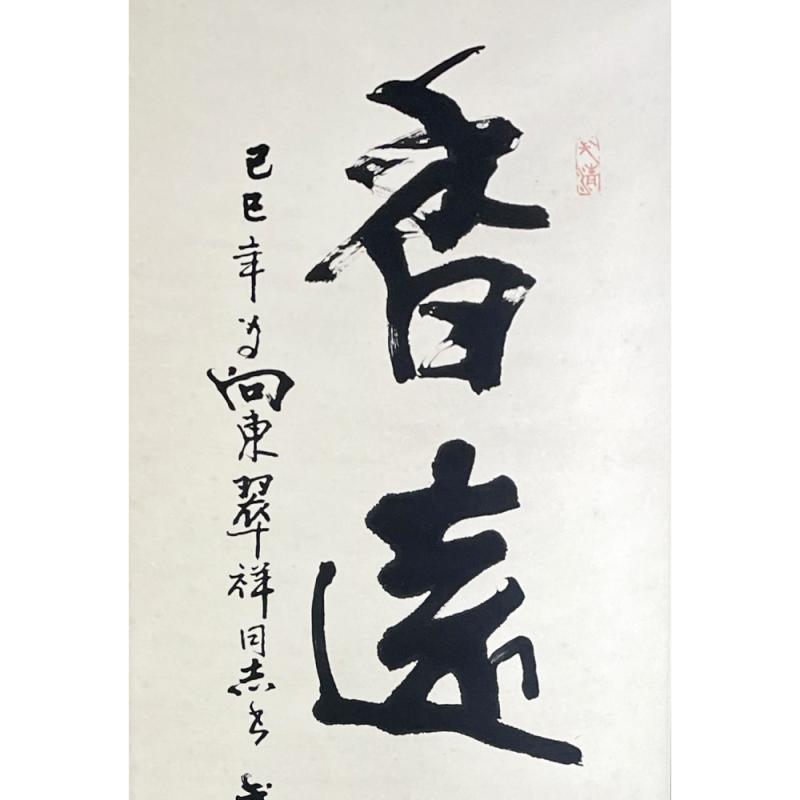 香遠
己巳年為向東翠祥同志書